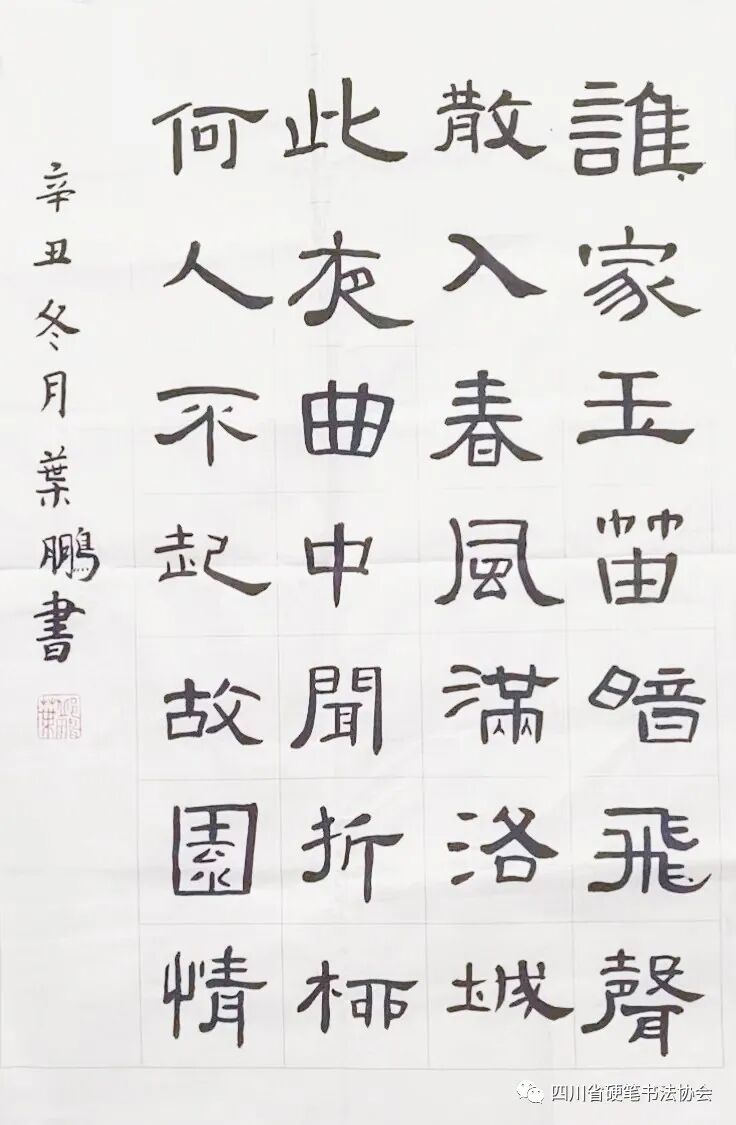 誰家玉笛暗飛聲
散入春風滿洛城
此夜曲中聞折柳
何人不起故園情
辛丑冬月葉鵬書
四川省硬笔书法协会